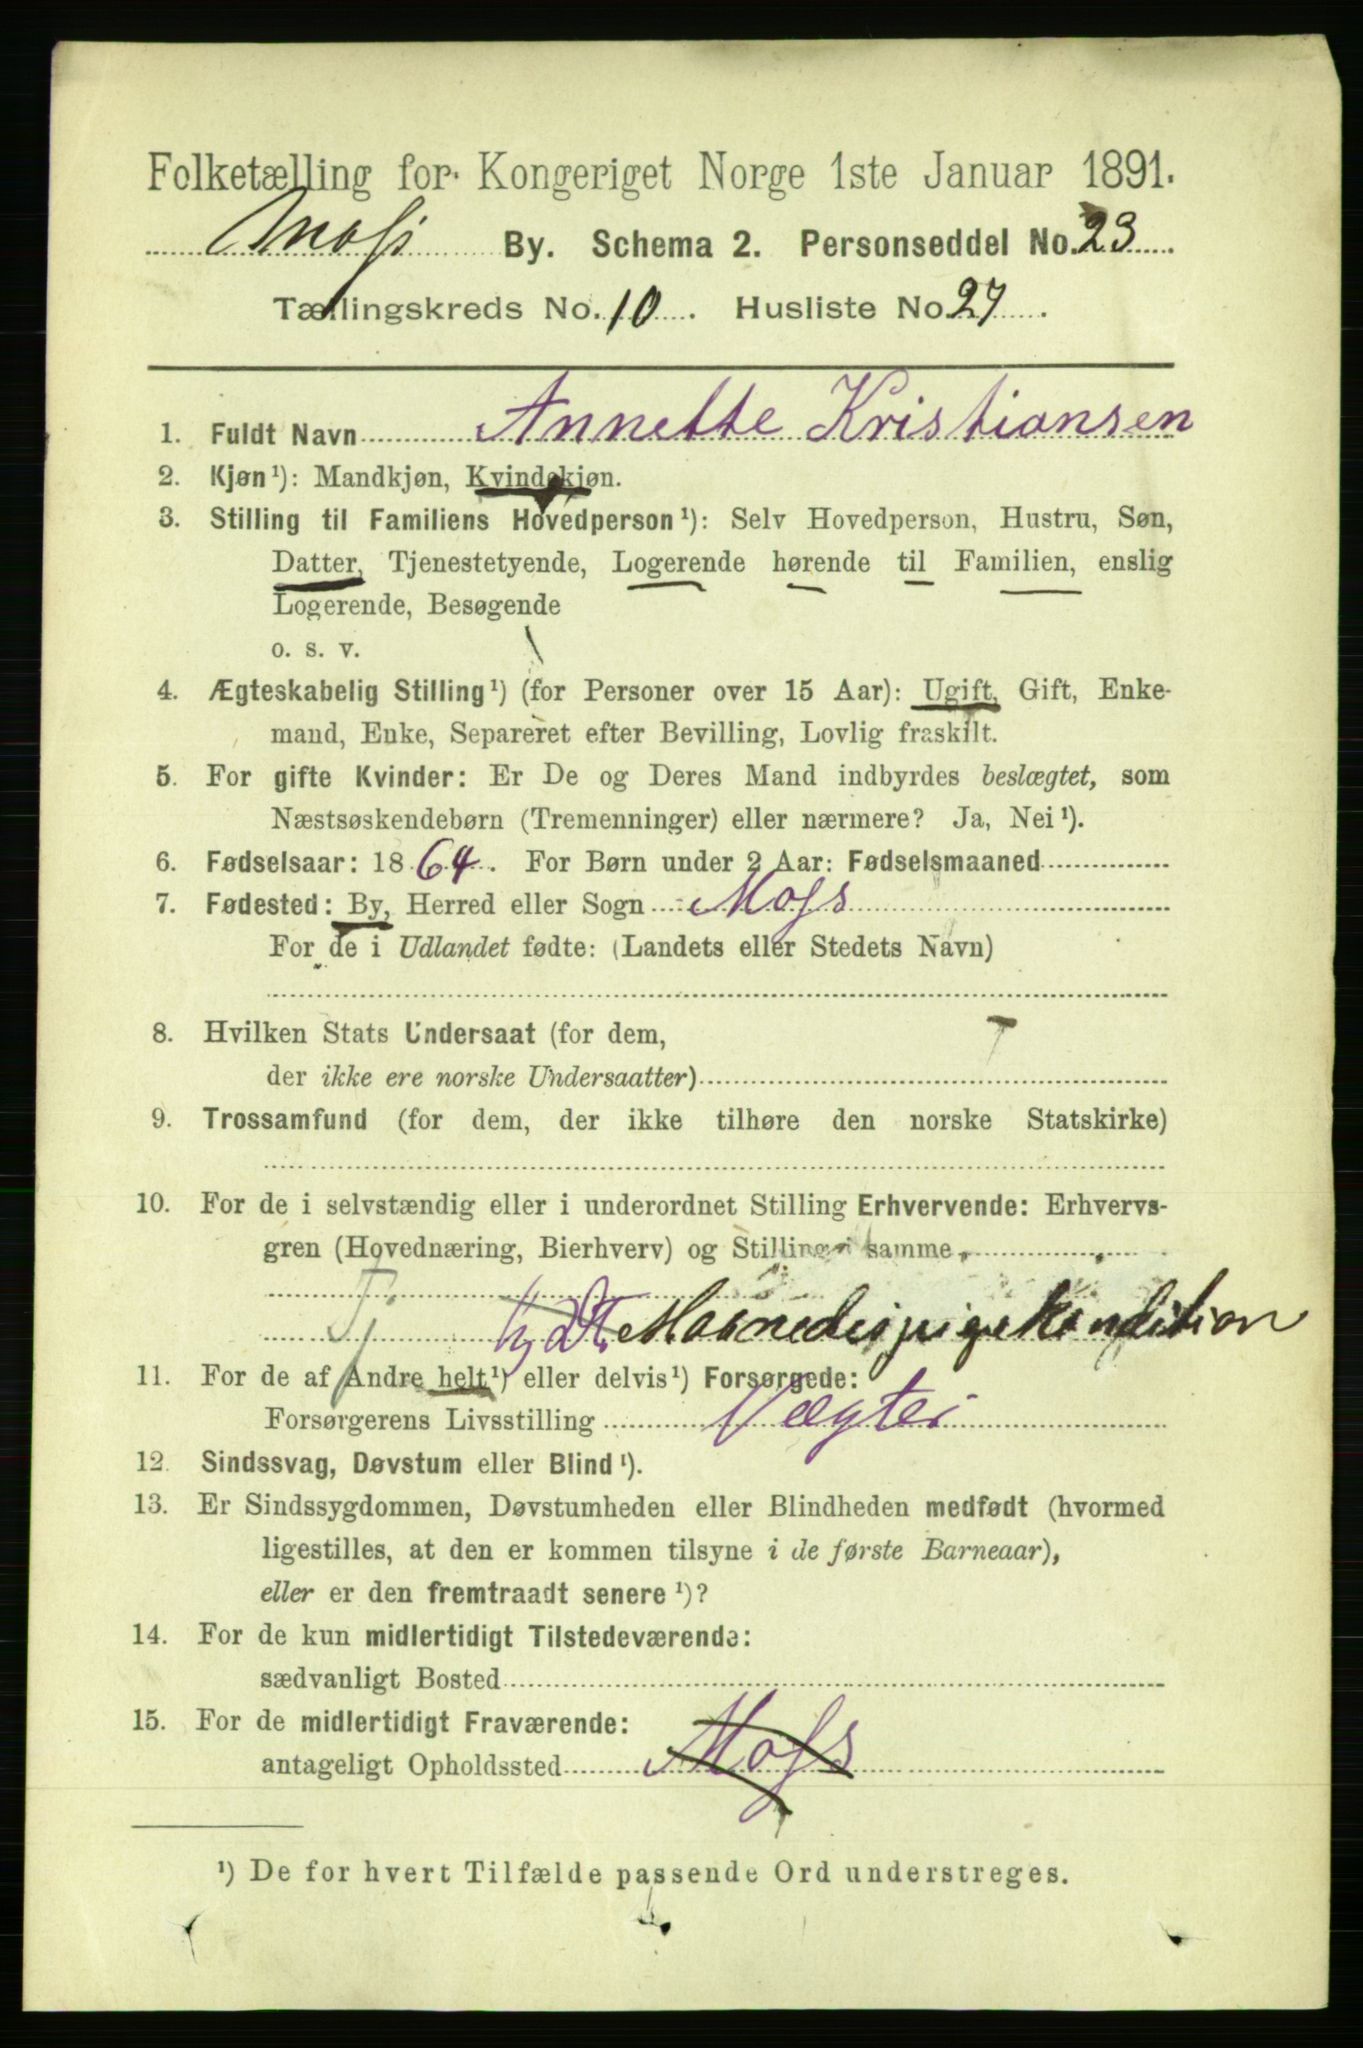 Folketælling for Kongeriget Norge 1ste Januar 1891.
Moss By. Schema 2. Personseddel No. 23
Tællingskreds No. 10. Husliste No. 27.
1. Fuldt Navn Annette Kristiansen
2. Kjøn¹): Mandkjøn, Kvindekjøn.
3. Stilling til Familiens Hovedperson¹): Selv Hovedperson, Hustru, Søn,
Datter, Tjenestetyende, Logerende hørende til Familien, enslig
Logerende, Besøgende
o. s. v.
4. Ægteskabelig Stilling¹) (for Personer over 15 Aar): Ugift, Gift, Enke-
mand, Enke, Separeret efter Bevilling, Lovlig fraskilt.
5. For gifte Kvinder: Er De og Deres Mand indbyrdes beslægtet, som
Næstsøskendebørn (Tremenninger) eller nærmere? Ja, Nei¹).
6. Fødselsaar: 1864. For Børn under 2 Aar: Fødselsmaaned
7. Fødested: By, Herred eller Sogn Moss
For de i Udlandet fødte: (Landets eller Stedets Navn)
8. Hvilken Stats Undersaat (for dem,
der ikke ere norske Undersaatter)
9. Trossamfund (for dem, der ikke tilhøre den norske Statskirke)
10. For de i selvstændig eller i underordnet Stilling Erhvervende: Erhvervs-
gren (Hovednæring, Bierhverv) og Stilling i samme
Maanedspigekondition
11. For de af Andre helt¹) eller delvis¹) Forsørgede:
Forsørgerens Livsstilling Vægter
12. Sindssvag, Døvstum eller Blind¹).
13. Er Sindssygdommen, Døvstumheden eller Blindheden medfødt (hvormed
ligestilles, at den er kommen tilsyne i de første Barneaar),
eller er den fremtraadt senere¹)?
14. For de kun midlertidigt Tilstedeværende:
sædvanligt Bosted
15. For de midlertidigt Fraværende:
antageligt Opholdssted Moss
¹) De for hvert Tilfælde passende Ord understreges.